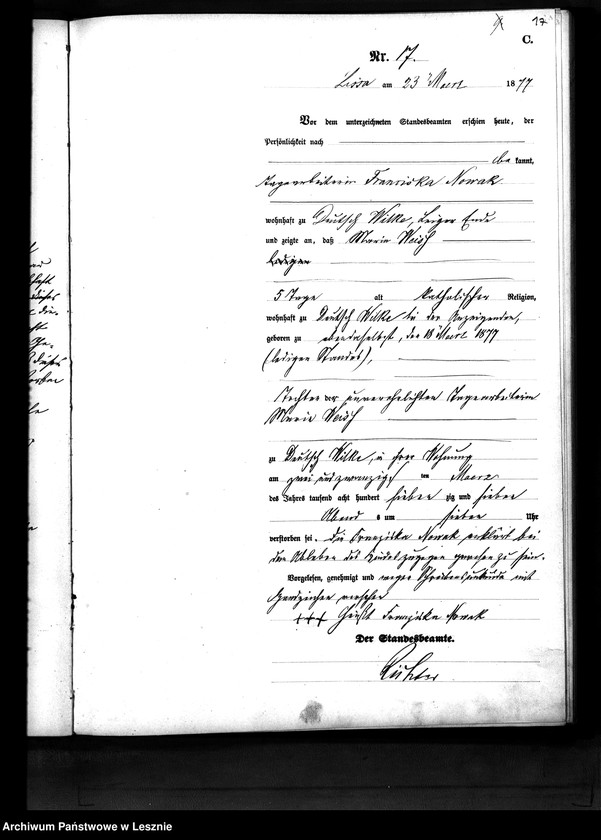 17
C.
Nr. 17.
Lissa am 23 Maerz 1877
Vor dem unterzeichneten Standesbeamten erschien heute, der
Persönlichkeit nach
be kannt,
Tagearbeiterin Franciska Nowak
wohnhaft zu Deutsch Wilke, Ende
und zeigte an, daß Maria Weiß
ledigen
5 Tage alt katholischer Religion,
wohnhaft zu Deutsch Wilke bei der Anzeigenden,
geboren zu ebendaselbst, den 18 Maerz 1877
(ledigen Standes),
Tochter der unverehelichten Tagearbeiterin
Maria Weiß
zu Deutsch Wilke, in ihrer Wohnung
am zwei und zwanzigsten Maerz
des Jahres tausend acht hundert sieben zig und sieben
Abend s um sieben Uhr
verstorben sei. Die Franziska Nowak erklärt bei
dem Ableben des Kindes zugegen gewesen zu sein.
Vorgelesen, genehmigt und wegen Schreibensunkunde mit
Handzeichen versehen
+++ Franziska Nowak
Der Standesbeamte.
Archiwum Państwowe w Lesznie